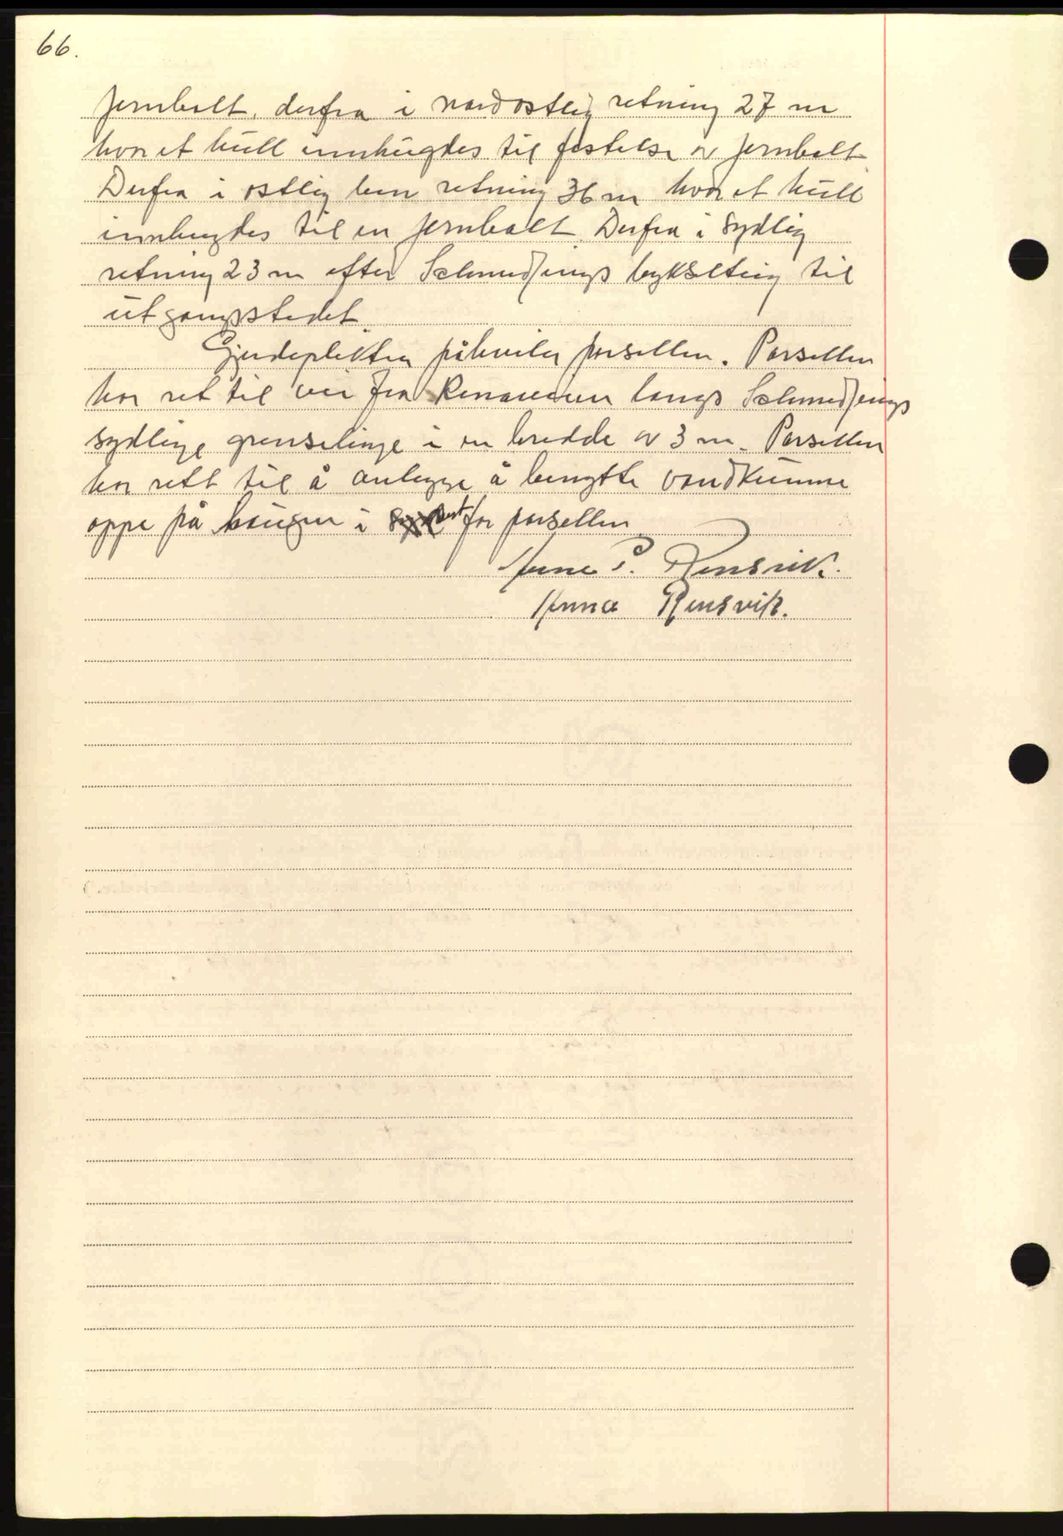 66.
jernbolt, derfra i nordostlig retning 27 m
hvor et hull innhugdes til festelse av jernbolt
Derfra i ostlig ben retning 36 m hvor et hull
innhugdes til en jernbolt. Derfra i sydlig
retning 23 m efter bykselteig til
utgangsstedet.
Gjerdeplikten påhviler parsellen. Parsellen
har ret til vei fra langs
sydlige grenselinje i en bredde av 3 m. Parsellen
har rett til å anlegge å benytte vandkumme
oppe på haugen i for parsellen
P. Rensvik.
Anna Rensvik.